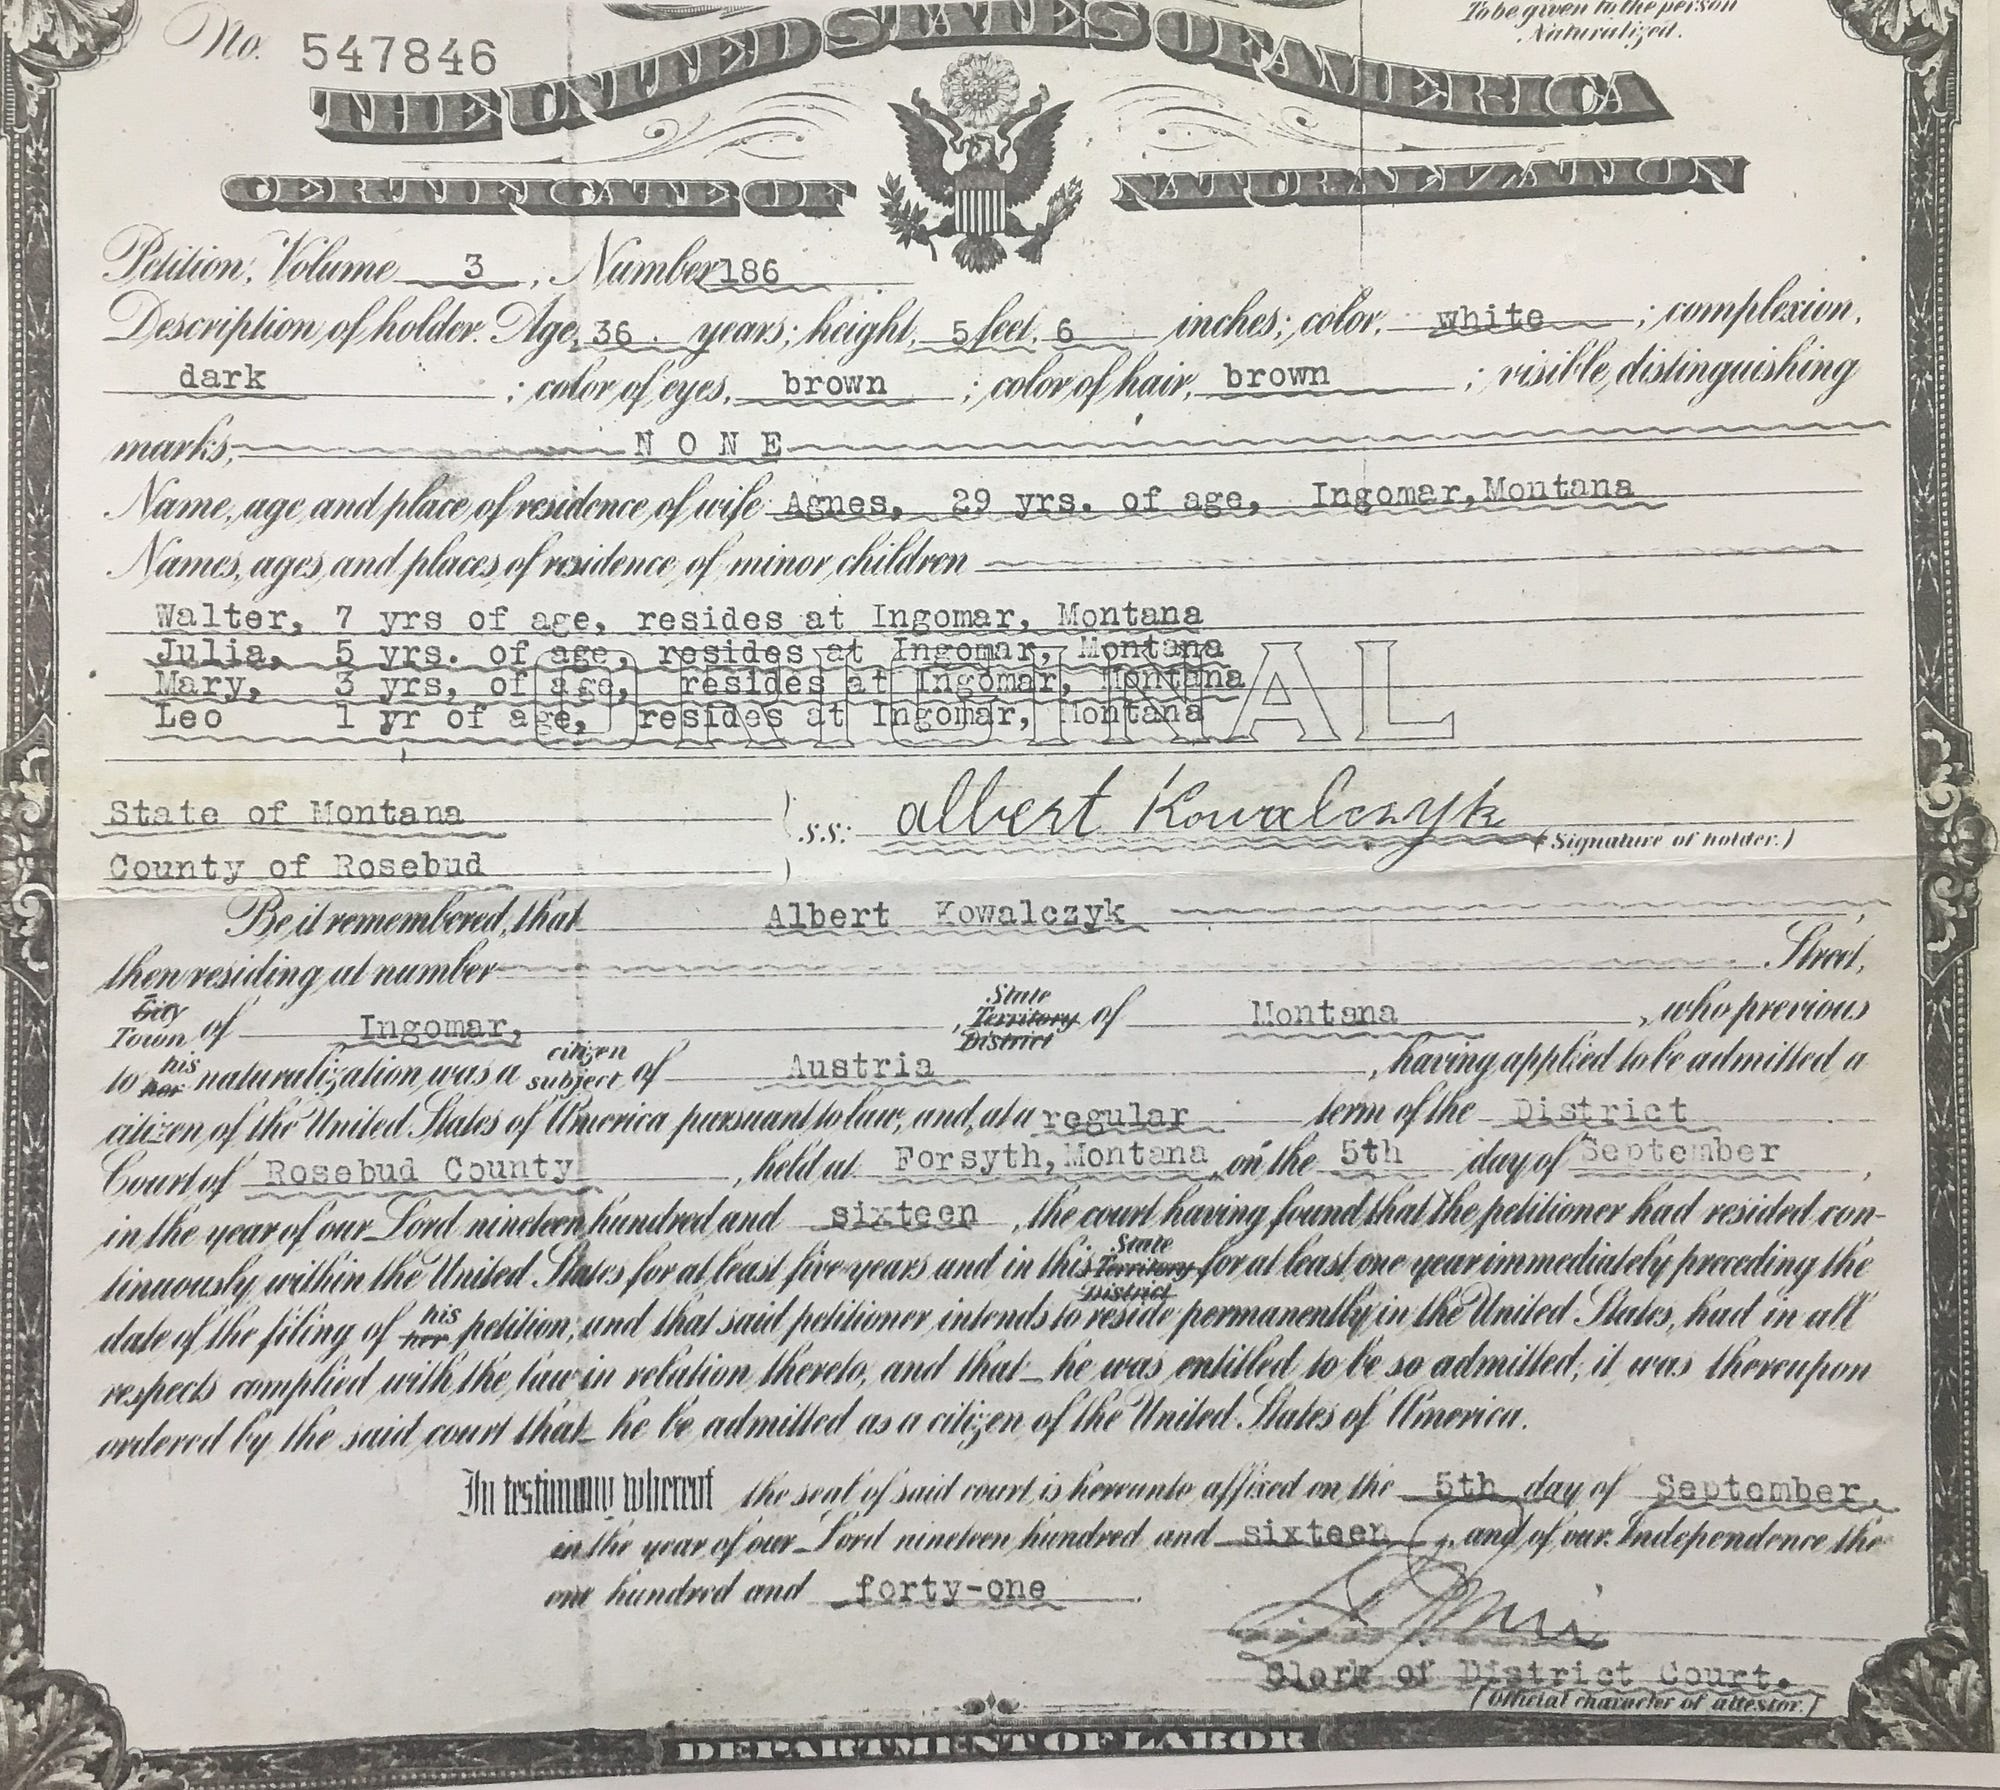 To be given to the person
No. 547846 Naturalized.
THE UNITED STATES OF AMERICA
CERTIFICATE OF NATURALIZATION
Petition, Volume 3, Number 186
Description of holder. Age, 36 years; height, 5 feet, 6 inches; color, white; complexion,
dark; color of eyes, brown; color of hair, brown; visible distinguishing
marks, NONE
Name, age and place of residence of wife Agnes, 29 yrs. of age, Ingomar, Montana
Names, ages and places of residence of minor children
Walter, 7 yrs of age, resides at Ingomar, Montana
Julia, 5 yrs. of age, resides at Ingomar, Montana
Mary, 3 yrs, of age, resides at Ingomar, Montana
Leo 1 yr of age, resides at Ingomar, Montana
ORIGINAL
State of Montana
s.s: albert Kowalczyk
(Signature of holder.)
County of Rosebud
Be it remembered, that Albert Kowalczyk,
then residing at number Street,
City Town of Ingomar, State Territory District of Montana, who previous
to his her naturalization was a citizen subject of Austria, having applied to be admitted a
citizen of the United States of America pursuant to law, and, at a regular term of the District
Court of Rosebud County, held at Forsyth, Montana on the 5th day of September,
in the year of our Lord nineteen hundred and sixteen, the court having found that the petitioner had resided con-
tinuously within the United States for at least five years and in this State Territory District for at least one year immediately preceding the
date of the filing of his her petition, and that said petitioner intends to reside permanently in the United States, had in all
respects complied with the law in relation thereto, and that he was entitled to be so admitted, it was thereupon
ordered by the said court that he be admitted as a citizen of the United States of America.
In testimony whereof the seal of said court is hereunto affixed on the 5th day of September,
in the year of our Lord nineteen hundred and sixteen, and of our Independence the
one hundred and forty-one.
Clerk of District Court.
(Official character of attestor.)
DEPARTMENT OF LABOR